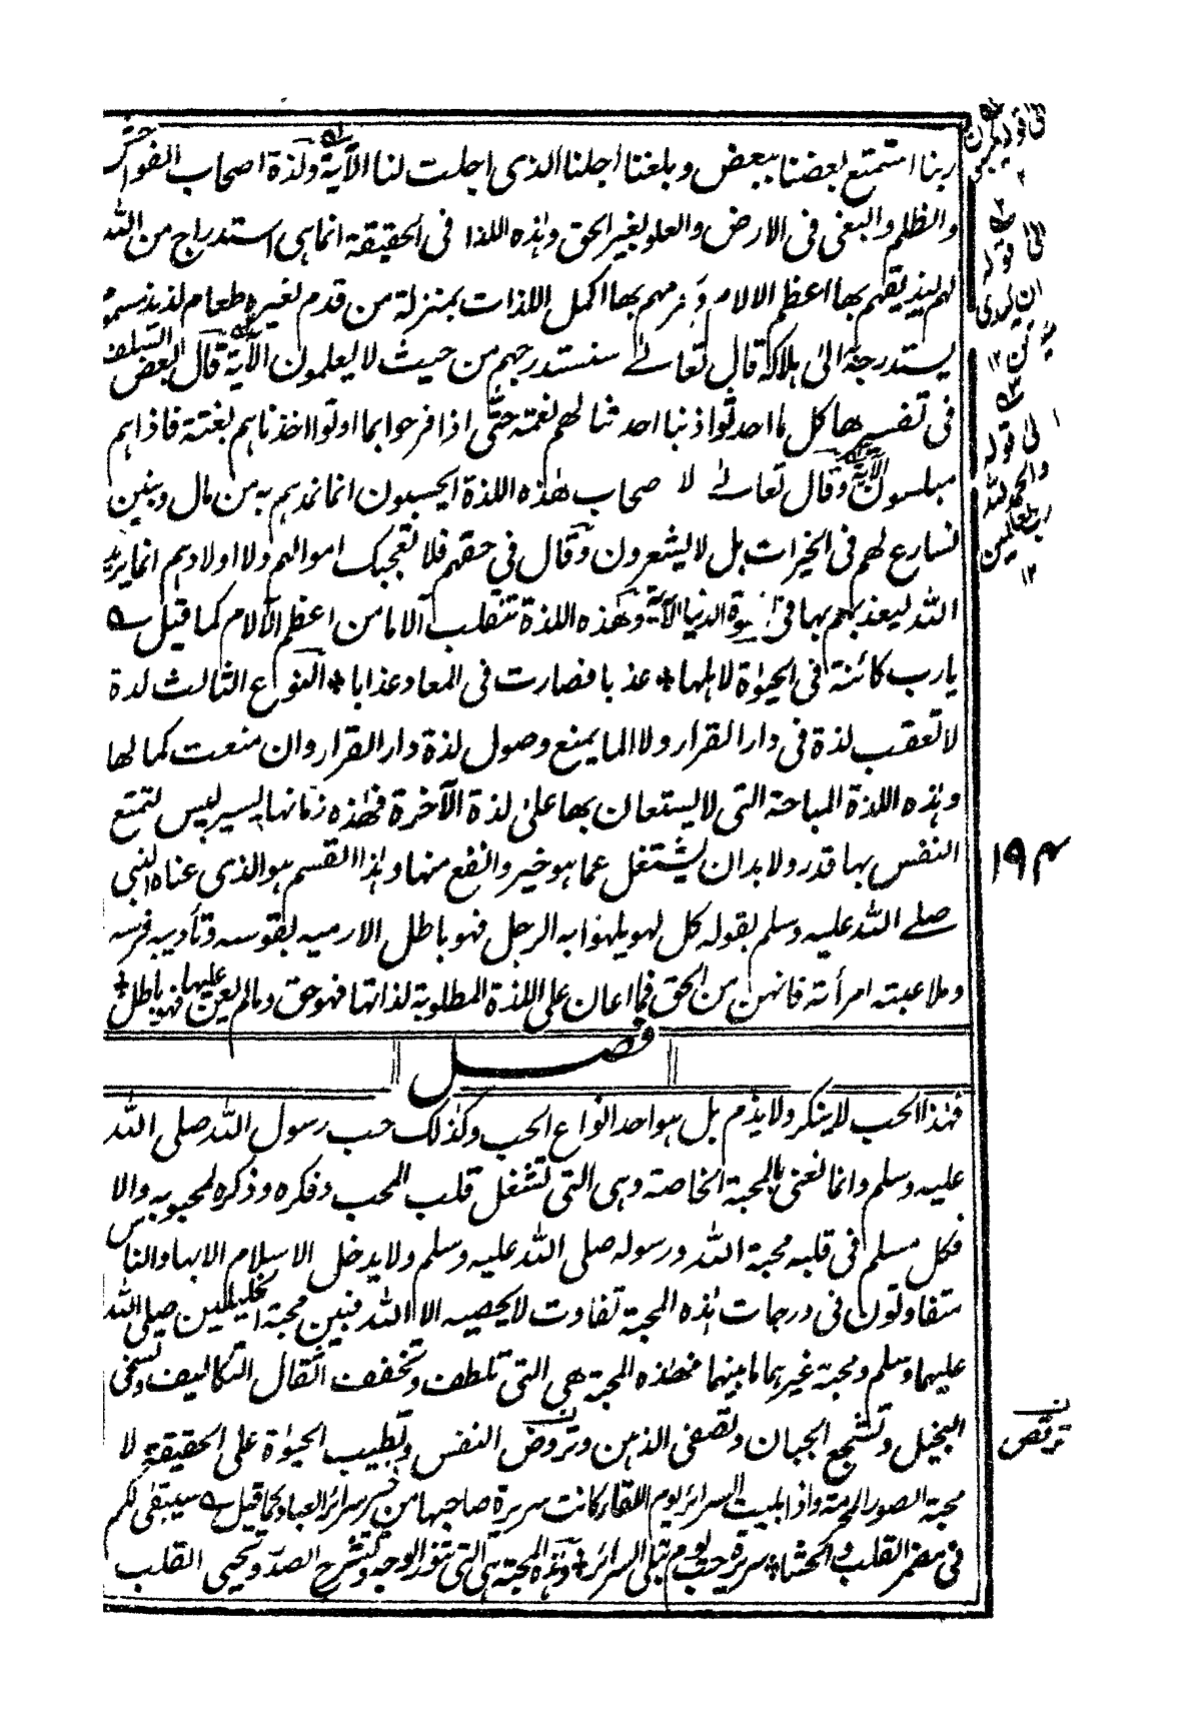 ربنا استمتع بعضنا ببعض وبلغنا اجلنا الذي اجلت لنا الآية ولذة اصحاب الفواحش
والظلم والبغي في الارض والعلو بغير الحق وهذه اللذا في الحقيقة انما هي استدراج من الله
لهم ليذيقهم بها اعظم الالام ويحرمهم بها اكمل اللذات بمنزلة من قدم لغيره طعام لذيذ مسموم
يستدرجه الى هلاكه قال تعالے سنستدرجهم من حيث لا يعلمون الآية قال بعض السلف
في تفسيرها كل ما احدثوا ذنبا احدثنا لهم نعمة حتى اذا فرحوا بما اوتوا اخذناهم بغتة فاذا هم
مبلسون الآية وقال تعالے لا صحاب هذه اللذة ايحسبون انما نمدهم به من مال وبنين
نسارع لهم في الخيرات بل لا يشعرون وقال في حقهم فلا تعجبك اموالهم ولا اولادهم انما يريد
الله ليعذبهم بها في الحيوة الدنيا الآية وهذه اللذة تنقلب آلاما من اعظم الآلام كما قيل
يارب كائنة في الحيوة لاهلها * عذبا فصارت في المعاد عذابا * النوع الثالث لذة
لا تعقب لذة في دار القرار ولا الما يمنع وصول لذة دار القرار وان منعت كمالها
وهذه اللذة المباحة التي لا يستعان بها على لذة الآخرة فهذه زمانها يسير ليس لتمتع
النفس بها قدر ولا بد ان يشتغل عما هو خير وانفع منها وهذا القسم هو الذي عناه النبي
صلے الله عليه وسلم بقوله كل لهو يلهو به الرجل فهو باطل الا رميه بقوسه وتأديبه فرسه
وملاعبته امرأته فانهن من الحق فما اعان على اللذة المطلوبة لذاتها فهو حق وما لم يعن عليها فهو باطل
فصل
فهذا الحب لا ينكر ولا يذم بل هو احد انواع الحب وكذلك حب رسول الله صلى الله
عليه وسلم وانما نعني بالمحبة الخاصة وهي التي تشغل قلب المحب وفكره وذكره لمحبوبه والا
فكل مسلم في قلبه محبة الله ورسوله صلى الله عليه وسلم ولا يدخل الاسلام الا بها والناس
متفاوتون في درجات هذه المحبة تفاوت لا يحصيه الا الله فبين محبة الخليلين صلى الله
عليهما وسلم ومحبة غيرهما ما بينهما فهذه المحبة هي التي تلطف وتخفف اثقال التكاليف وتسخي
البخيل وتشجع الجبان وتصفي الذهن وتروض النفس وتطيب الحيوة على الحقيقة لا
محبة الصور المحرمة واذا بليت السرائر يوم اللقاء كانت سريرة صاحبها من خير سرائر العباد كما قيل سيبقى لكم
في مضمر القلب والحشا * سريرة حب يوم تبلى السرائر * وهذه المحبة هي التي تنور الوجه وتشرح الصدر وتحيي القلب
الى قوله
الى قوله
الى قوله
والحمد لله
رب العالمين
١٢
١٩٤